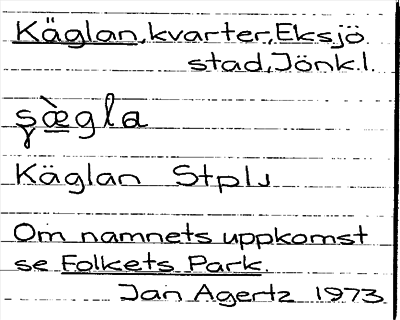 Käglan, kvarter, Eksjö
stad, Jönk.l.
Käglan Stplj
Om namnets uppkomst
se Folkets Park.
Jan Agertz 1973